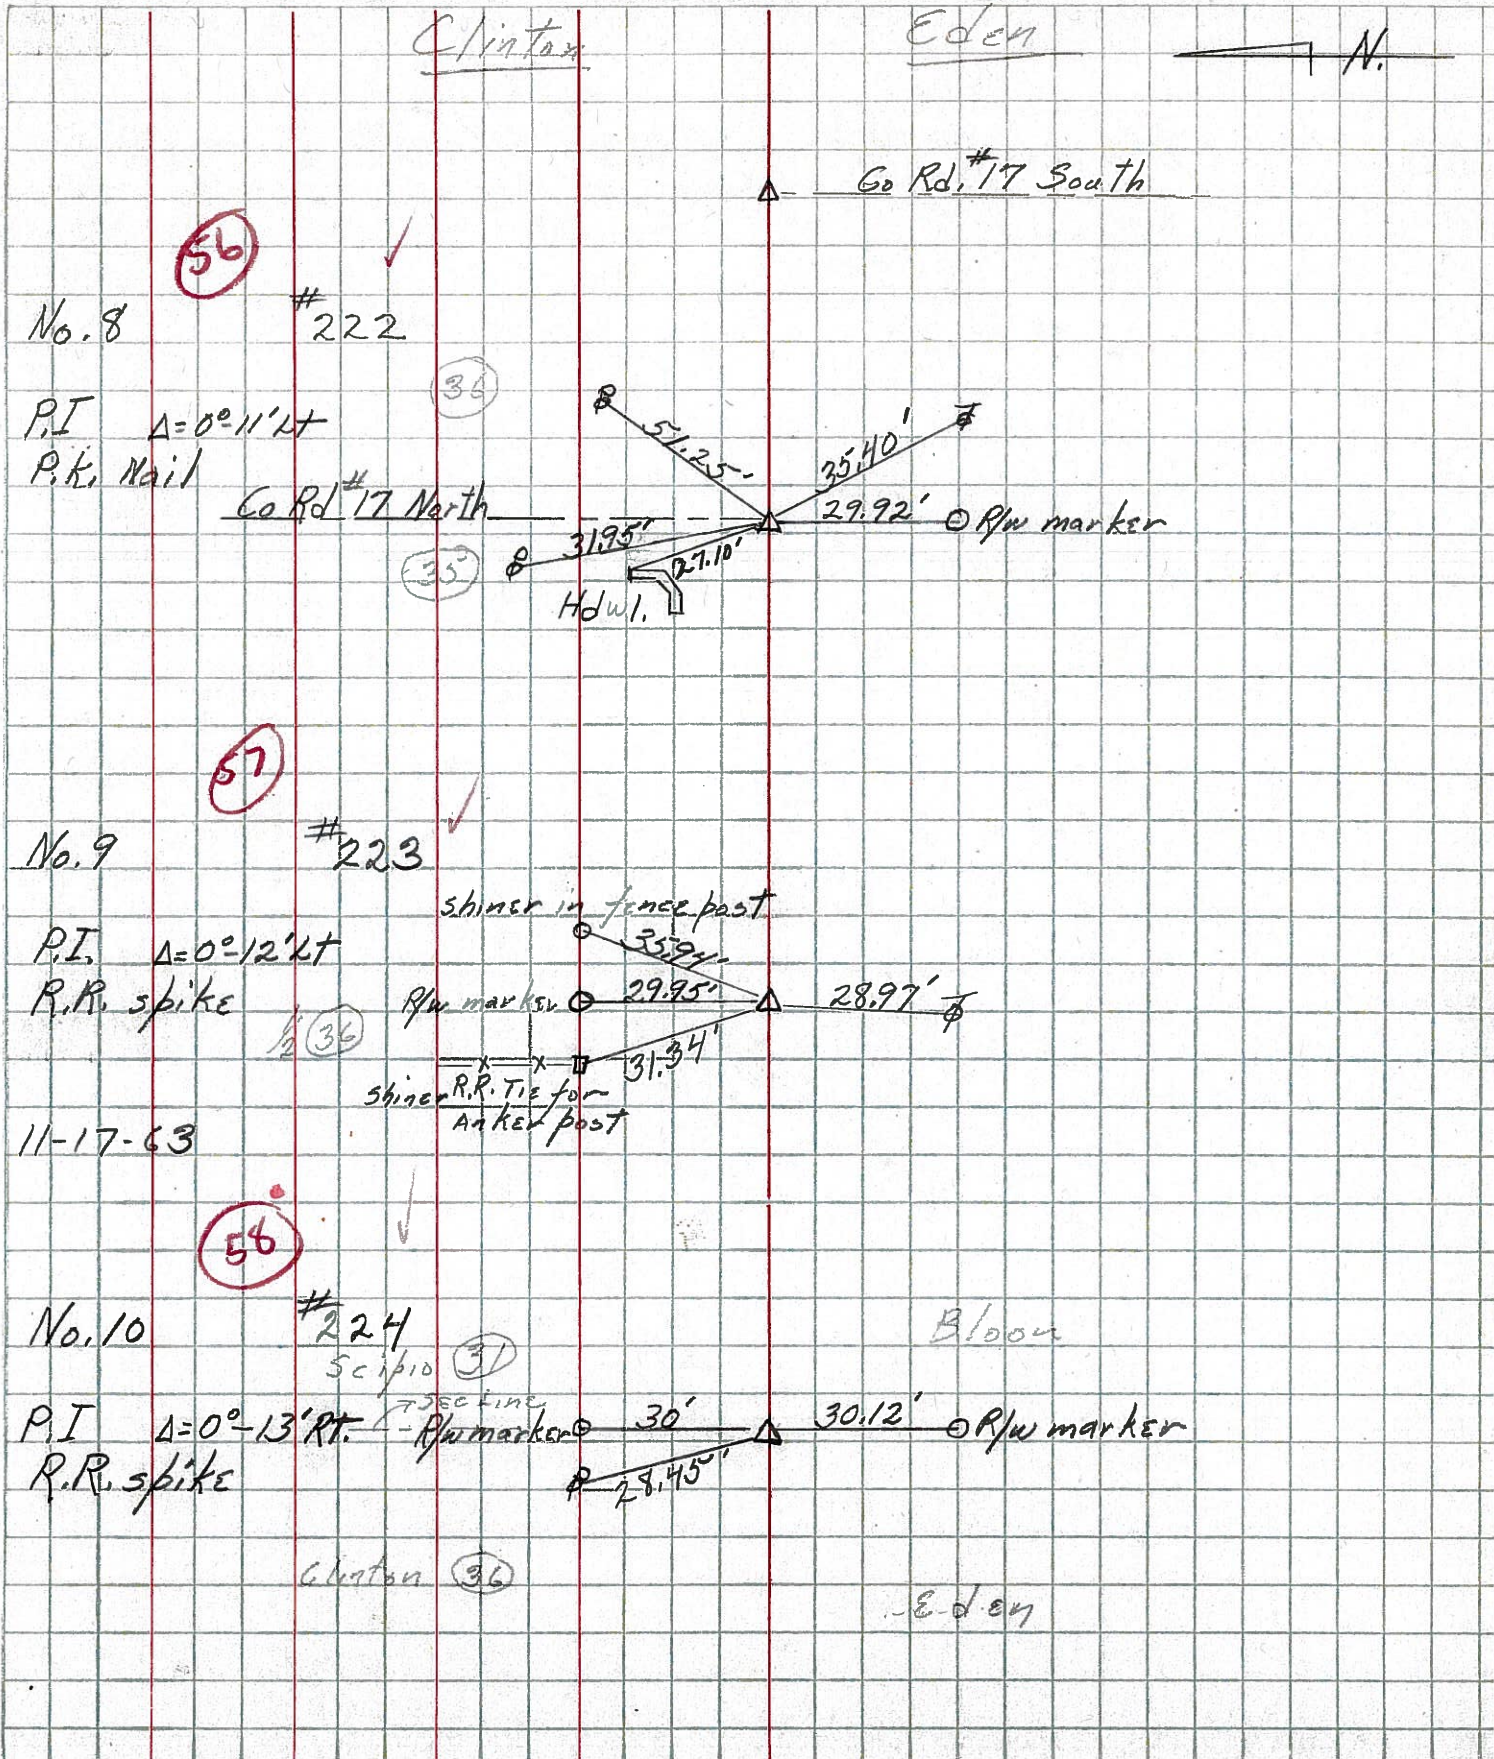 Clinton
Eden
N.
Co Rd. #17 South
56
No. 8 #222
36
P.I Δ=0°-11' Lt
P.K. Nail
51.25'
35.40'
Co Rd #17 North
29.92' R/w marker
31.95'
35
27.10'
Hdwl.
57
No. 9 #223
shiner in fence post
35.94'
P.I. Δ=0°-12' Lt
R.R. spike
R/w marker 29.95' 28.97'
1/2 36
31.34'
shiner R.R. Tie for
Anker post
11-17-63
58
No. 10 #224
Bloom
Scipio 31
Sec Line
P.I Δ=0°-13' Rt. R/w marker 30' 30.12' R/w marker
R.R. spike
28.45'
Clinton 36
Eden